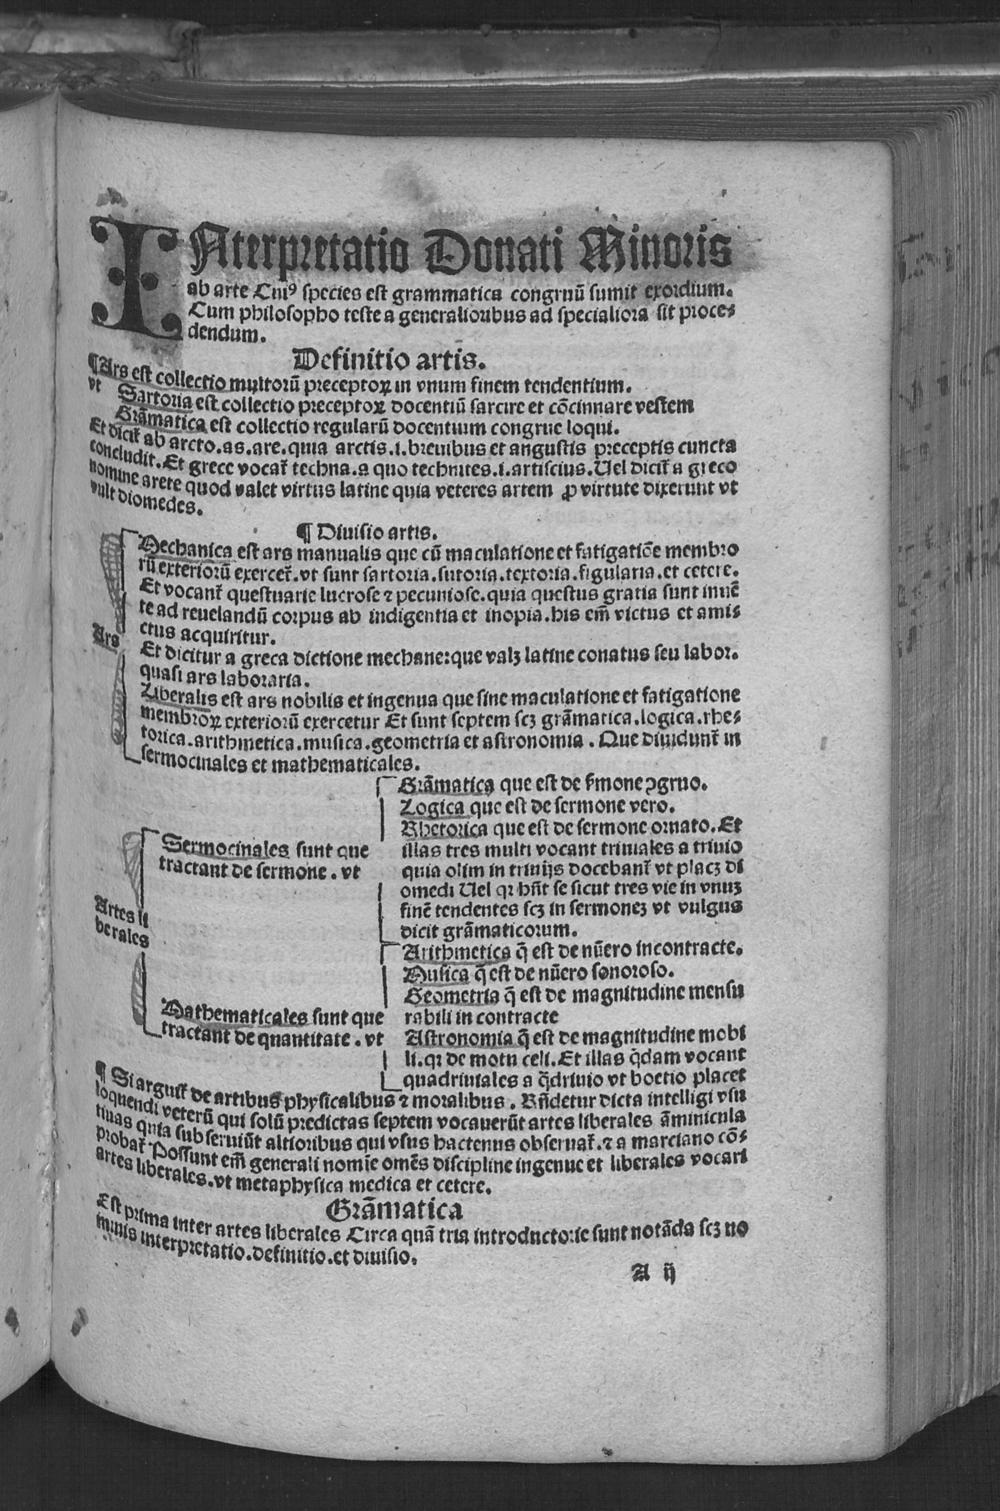 INterpretatio Donati Minoris
ab arte Cuiꝰ species est grammatica congruū sumit exordium.
Cum philosopho teste a generalioribus ad specialiora sit proce⸗
dendum.
Definitio artis.
¶Ars est collectio multorū preceptoꝝ in vnum finem tendentium.
vt Sartoria est collectio preceptoꝝ docentiū sarcire et cōcinnare vestem
Grāmatica est collectio regularū docentium congrue loqui.
Et dicit᷑ ab arcto.as.are.quia arctis.i.breuibus et angustis preceptis cuncta
concludit.Et grece vocat᷑ techna.a quo technites.i.artiscius.Uel dicit᷑ a greco
nomine arete quod valet virtus latine quia veteres artem ꝓ virtute dixerunt vt
vult diomedes.
¶ Diuisio artis.
Mechanica est ars manualis que cū maculatione et fatigatiōe membro
rū exteriorū exercet᷑.vt sunt sartoria.sutoria.textoria.figularia.et cetere.
Et vocant᷑ questuarie lucrose ⁊ pecuniose.quia questus gratia sunt inuē
te ad reuelandū corpus ab indigentia et inopia.his em̄ victus et ami⸗
ctus acquiritur.
Ars
Et dicitur a greca dictione mechane:que valꝫ latine conatus seu labor.
quasi ars laboraria.
Liberalis est ars nobilis et ingenua que sine maculatione et fatigatione
membroꝝ exteriorū exercetur Et sunt septem scꝫ grāmatica.logica.rhe⸗
torica.arithmetica.musica.geometria et astronomia. Que diuidunt᷑ in
sermocinales et mathematicales.
Artes li
berales
Sermocinales sunt que
tractant de sermone. vt
Grāmatica que est de s̄mone ꝯgruo.
Logica que est de sermone vero.
Rhetorica que est de sermone ornato.Et
illas tres multi vocant triuiales a triuio
quia olim in triuijs docebant᷑ vt placꝫ di
omedi Uel qꝛ hn̄t se sicut tres vie in vnuꝫ
finē tendentes scꝫ in sermoneꝫ vt vulgus
dicit grāmaticorum.
Mathematicales sunt que
tractant de quantitate. vt
Arithmetica q̄ est de nūero incontracte.
Musica q̄ est de nūero sonoroso.
Geometria q̄ est de magnitudine mensu
rabili in contracte
Astronomia q̄ est de magnitudine mobi
li.qꝛ de motu celi.Et illas q̄dam vocant
quadriuiales a q̄driuio vt boetio placet
¶ Si arguit᷑ de artibus physicalibus ⁊ moralibus. Rn̄detur dicta intelligi vsu
loquendi veterū qui solū predictas septem vocauerūt artes liberales āminicula
tiuas quia sub seruiūt altioribus qui vsus hactenus obseruat᷑.⁊ a marciano cō⸗
probat᷑ Possunt em̄ generali nomīe omēs discipline ingenue et liberales vocari
artes liberales.vt metaphysica medica et cetere.
Grāmatica
Est prima inter artes liberales Circa quā tria introductorie sunt notāda scꝫ no
minis interpretatio.definitio.et diuisio.
A ij